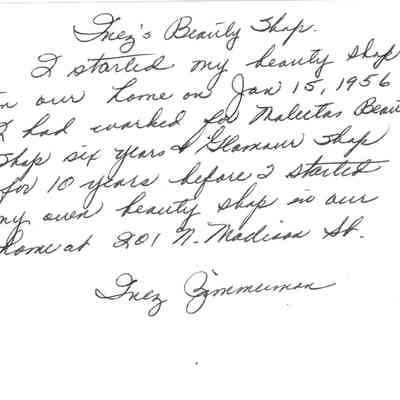 Inez's Beauty Shop.
I started my beauty shop
in our home on Jan 15, 1956
I had worked for Maleetas Beauty
Shop six years & Glamour Shop
for 10 years before I started
my own beauty shop in our
home at 201 N. Madison St.
Inez Zimmerman